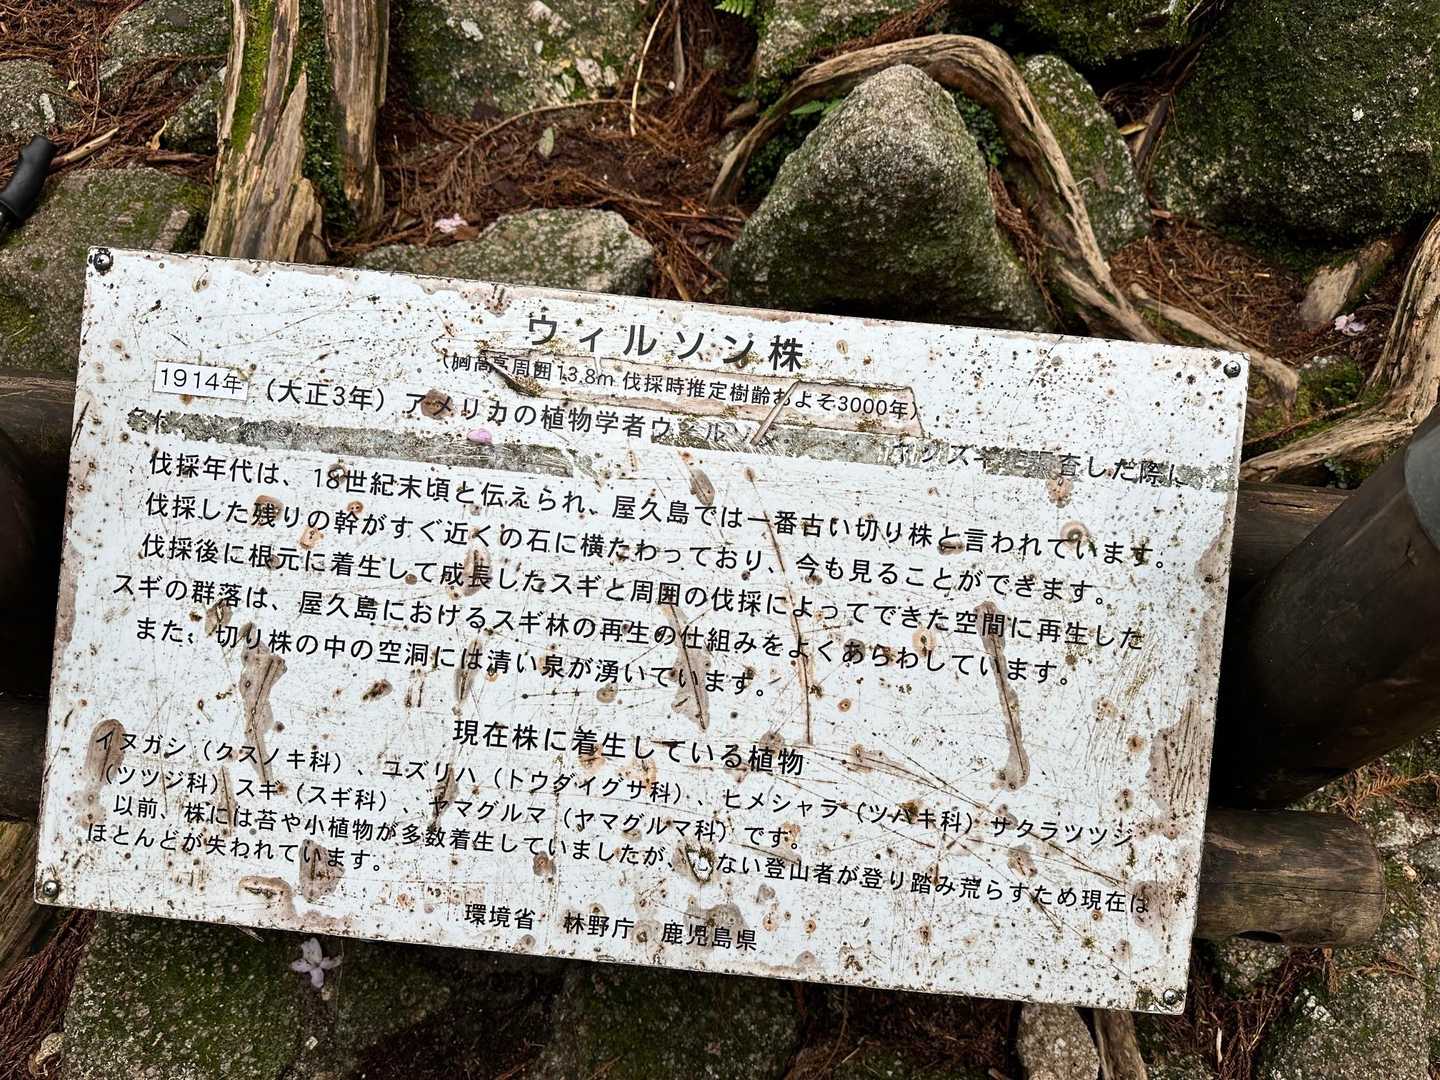 ウィルソン株
(胸高亭周囲13.8m 伐採時推定樹齢およそ3000年)
1914年 (大正3年) アメリカの植物学者ウィルソン ヤクスギ 査した際に
伐採年代は、18世紀末頃と伝えられ、屋久島では一番古い切り株と言われています。
伐採した残りの幹がすぐ近くの石に横たわっており、今も見ることができます。
伐採後に根元に着生して成長したスギと周囲の伐採によってできた空間に再生した
スギの群落は、屋久島におけるスギ林の再生の仕組みをよくあらわしています。
また、切り株の中の空洞には清い泉が湧いています。
現在株に着生している植物
イヌガシ(クスノキ科)、ユズリハ(トウダイグサ科)、ヒメシャラ(ツバキ科)サクラツツジ
(ツツジ科)スギ(スギ科)、ヤマグルマ(ヤマグルマ科)です。
以前、株には苔や小植物が多数着生していましたが、 ない登山者が登り踏み荒らすため現在は
ほとんどが失われています。
環境省 林野庁 鹿児島県